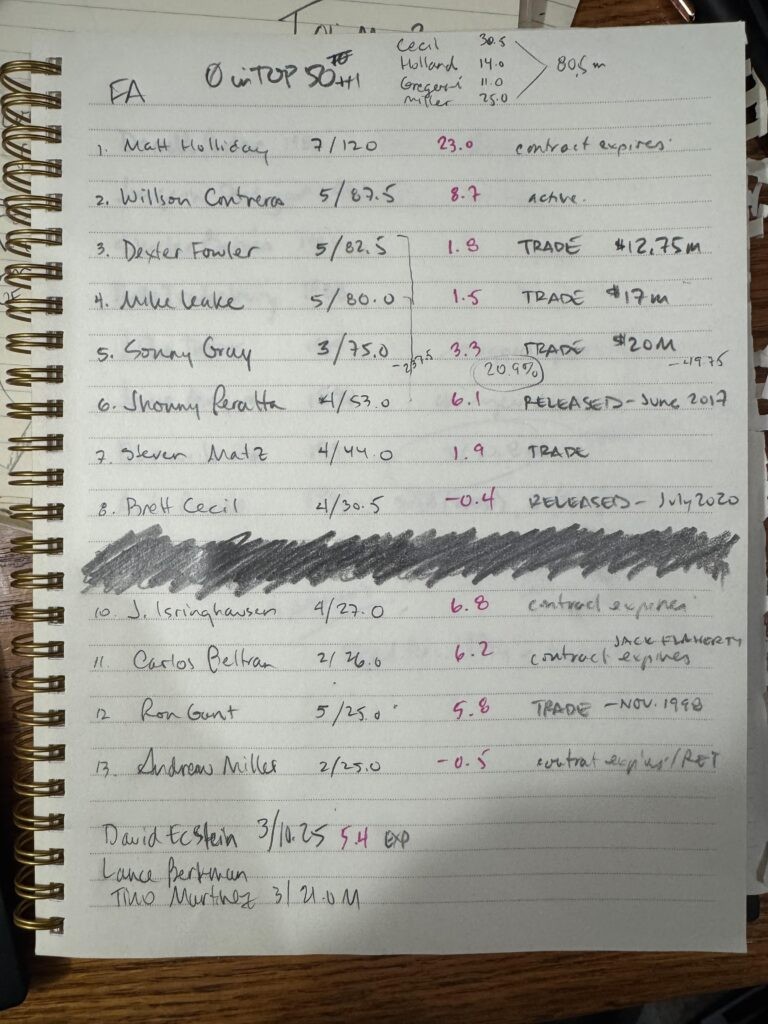 FA
0 in TOP 50
Cecil 30.5
Holland 14.0
Gregerson 11.0
Miller 25.0
80.5 m
1. Matt Holliday 7/120 23.0 contract expires
2. Willson Contreras 5/87.5 8.7 active.
3. Dexter Fowler 5/82.5 1.8 TRADE $12.75m
4. Mike Leake 5/80.0 1.5 TRADE $17m
5. Sonny Gray 3/75.0 -237.5 3.3 TRADE $20M
20.9% -49.75
6. Jhonny Peralta 4/53.0 6.1 RELEASED - June 2017
7. Steven Matz 4/44.0 1.9 TRADE
8. Brett Cecil 4/30.5 -0.4 RELEASED - July 2020
10. J. Isringhausen 4/27.0 6.8 contract expires
JACK FLAHERTY
11. Carlos Beltran 2/26.0 6.2 contract expires
12 Ron Gant 5/25.0 5.8 TRADE - NOV. 1998
13. Andrew Miller 2/25.0 -0.5 contract expires/RET
David Ecstein 3/10.25 5.4 EXP
Lance Berkman
Tino Martinez 3/21.0M